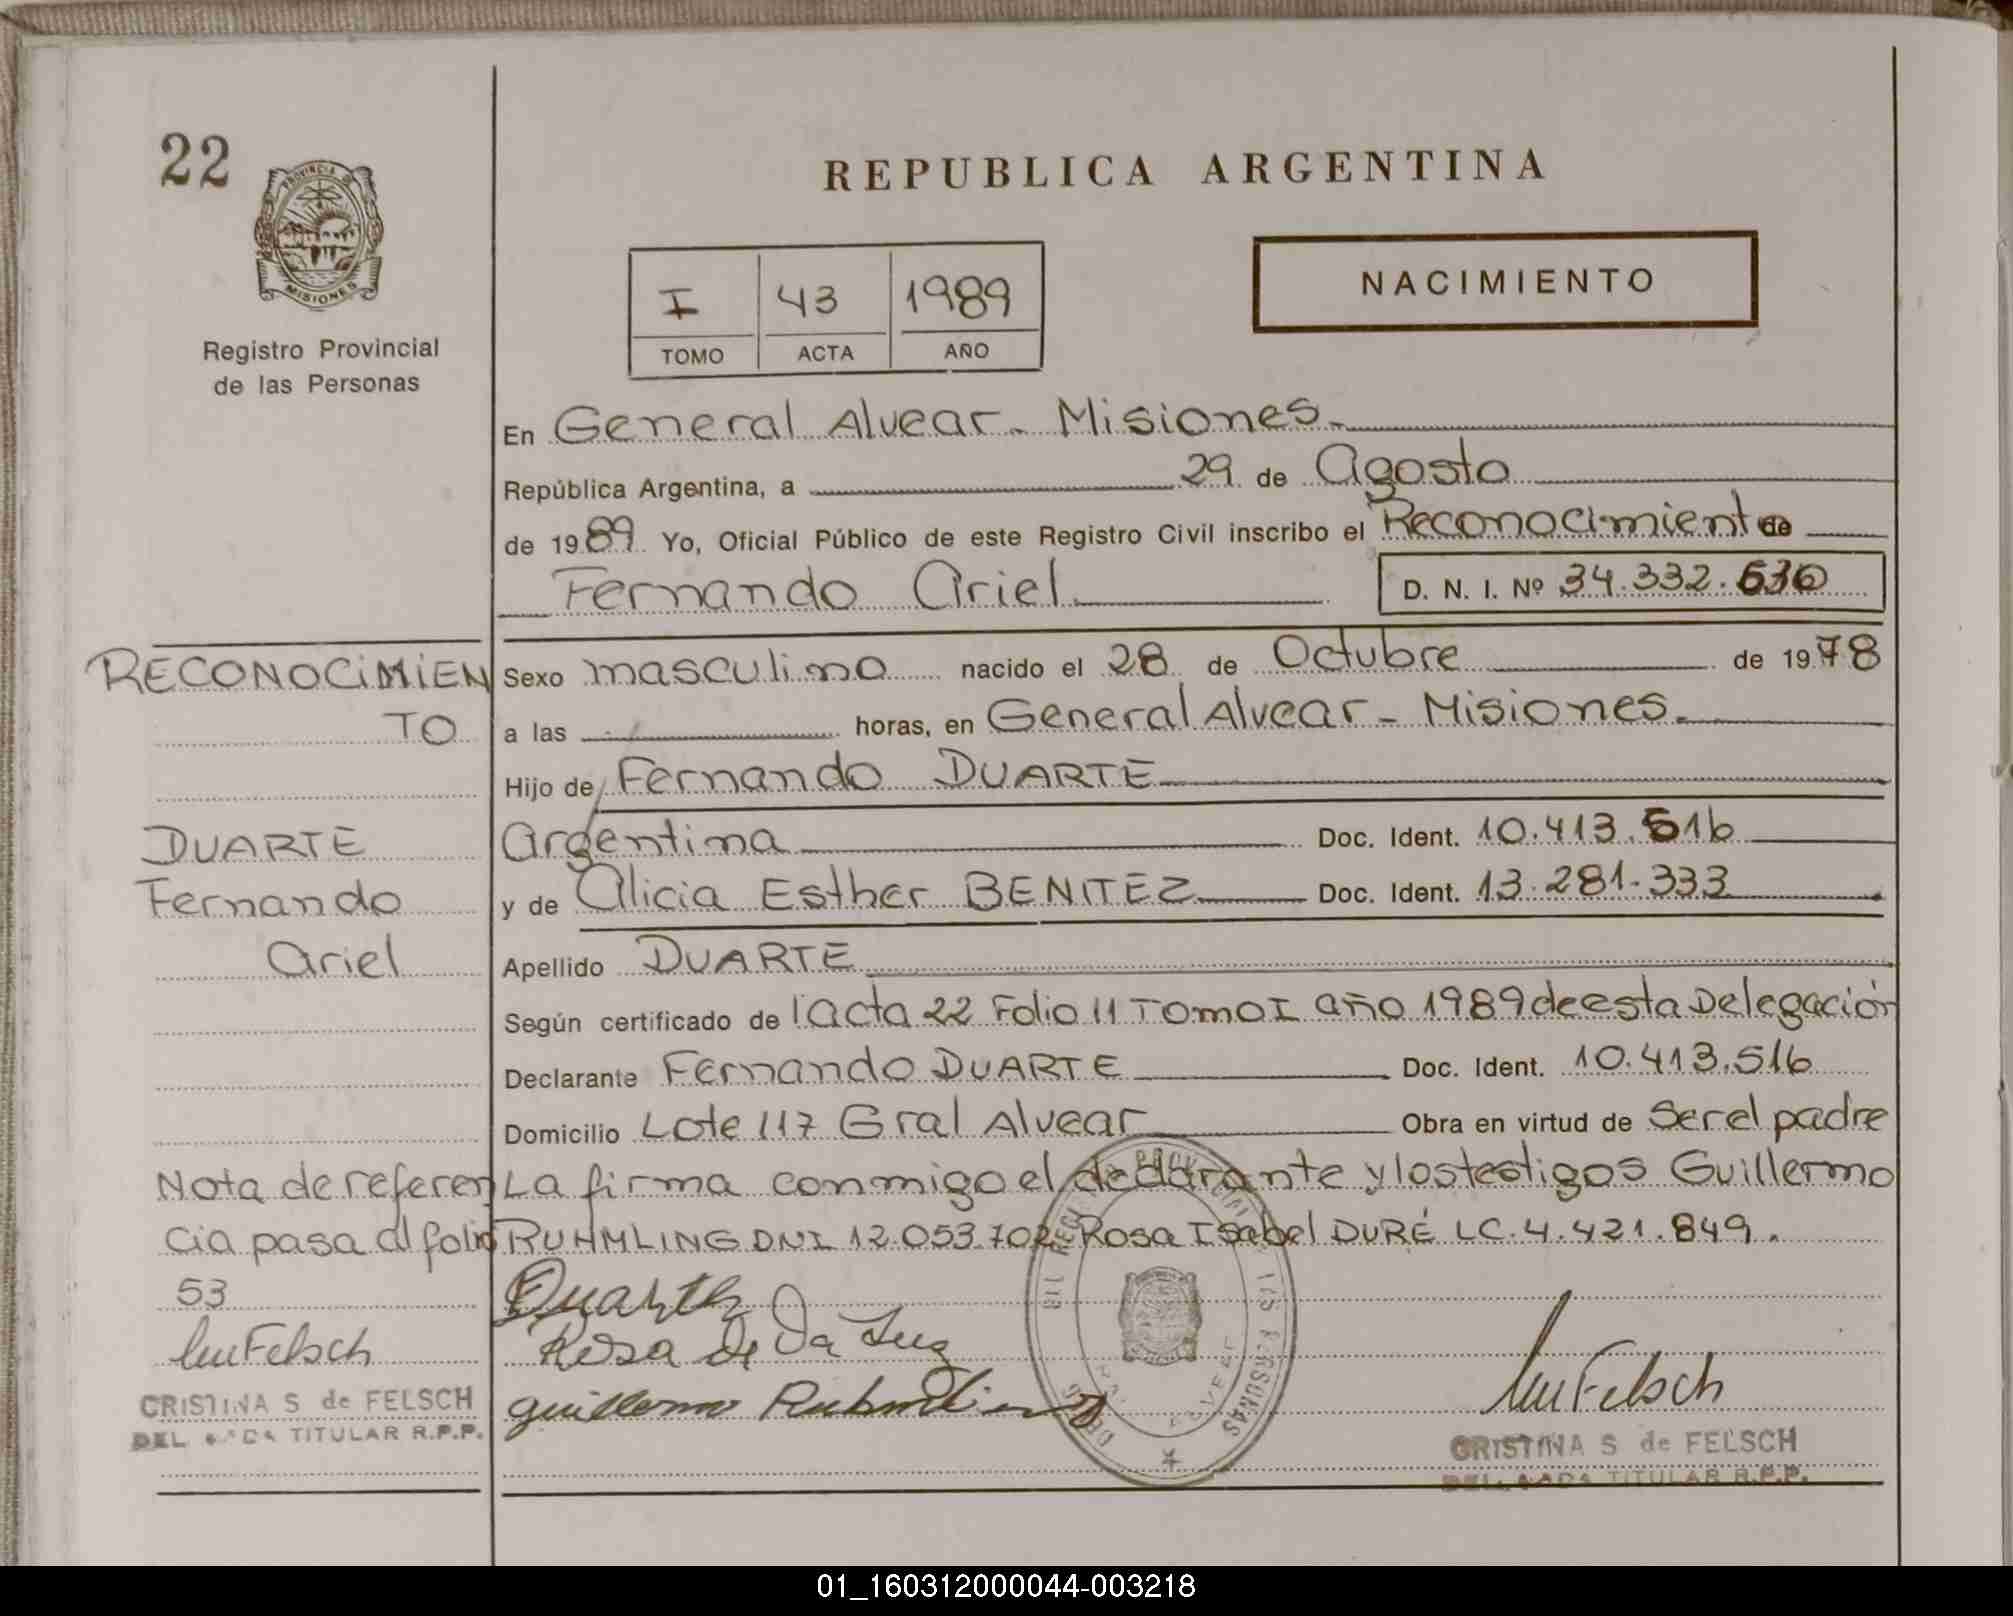 22
REPUBLICA ARGENTINA
PROVINCIA DE
MISIONES
Registro Provincial
de las Personas
I 43 1989
TOMO ACTA AÑO
NACIMIENTO
En General Alvear - Misiones.
República Argentina, a 29 de Agosto
de 1989 Yo, Oficial Público de este Registro Civil inscribo el Reconocimiento de
Fernando Ariel D. N. I. Nº 34.332.636
RECONOCIMIEN
TO
DUARTE
Fernando
Ariel
Nota de referen
cia pasa al folio
53
CRISTINA S de FELSCH
TITULAR R.P.P.
Sexo masculino nacido el 28 de Octubre de 1978
a las horas, en General Alvear - Misiones.
Hijo de Fernando DUARTE
Argentina Doc. Ident. 10.413.516
y de Alicia Esther BENITEZ Doc. Ident. 13.281.333
Apellido DUARTE
Según certificado de l'acta 22 Folio 11 Tomo I año 1989 de esta Delegación
Declarante Fernando DUARTE Doc. Ident. 10.413.516
Domicilio Lote 117 Gral Alvear Obra en virtud de Ser el padre
La firma conmigo el declarante y los testigos Guillermo
RUHMLING DNI 12.053.702 Rosa Isabel DURÉ LC. 4.421.849.
Duarte
Rosa de Da Luz
Guillermo
CRISTINA S de FELSCH
TITULAR R.P.P.
01_160312000044-003218